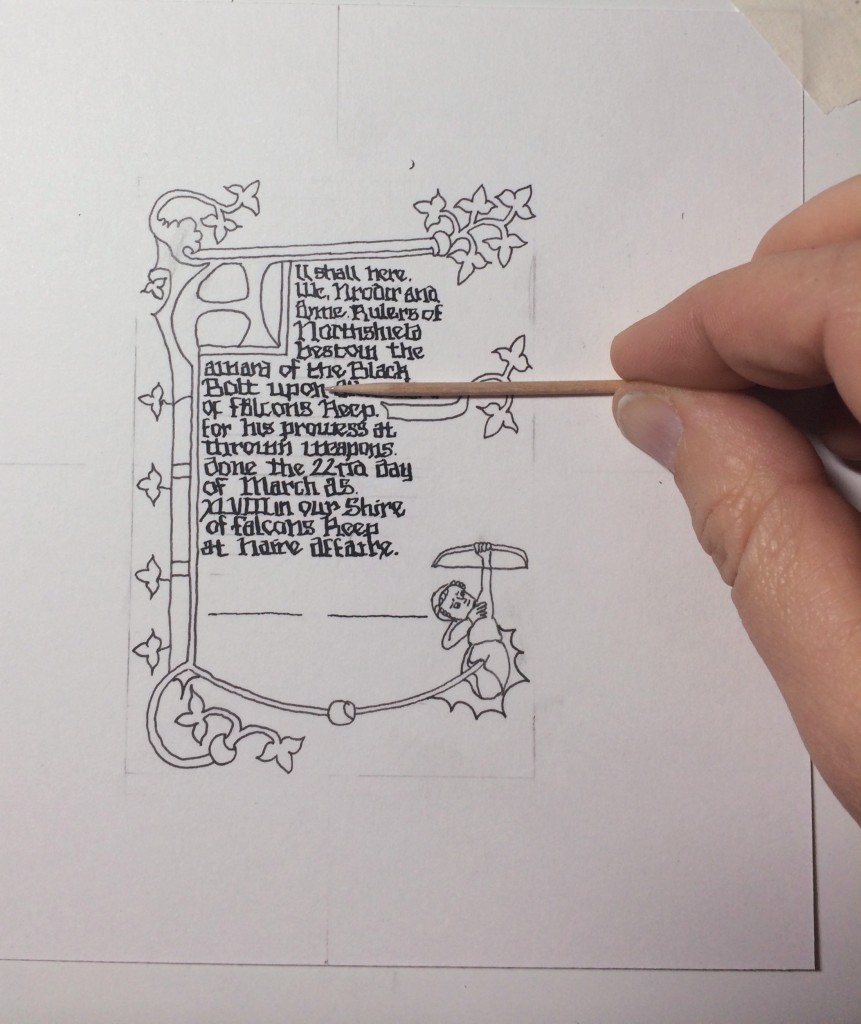 All shall here.
We, Hrodir and
Anne Rulers of
Northshield
bestow the
award of the Black
Bolt upon
of falcons Keep.
for his prowess at
thrown weapons.
done the 22nd day
of March AS.
XLVIII in our Shire
of falcons Keep
at Haire Affaire.